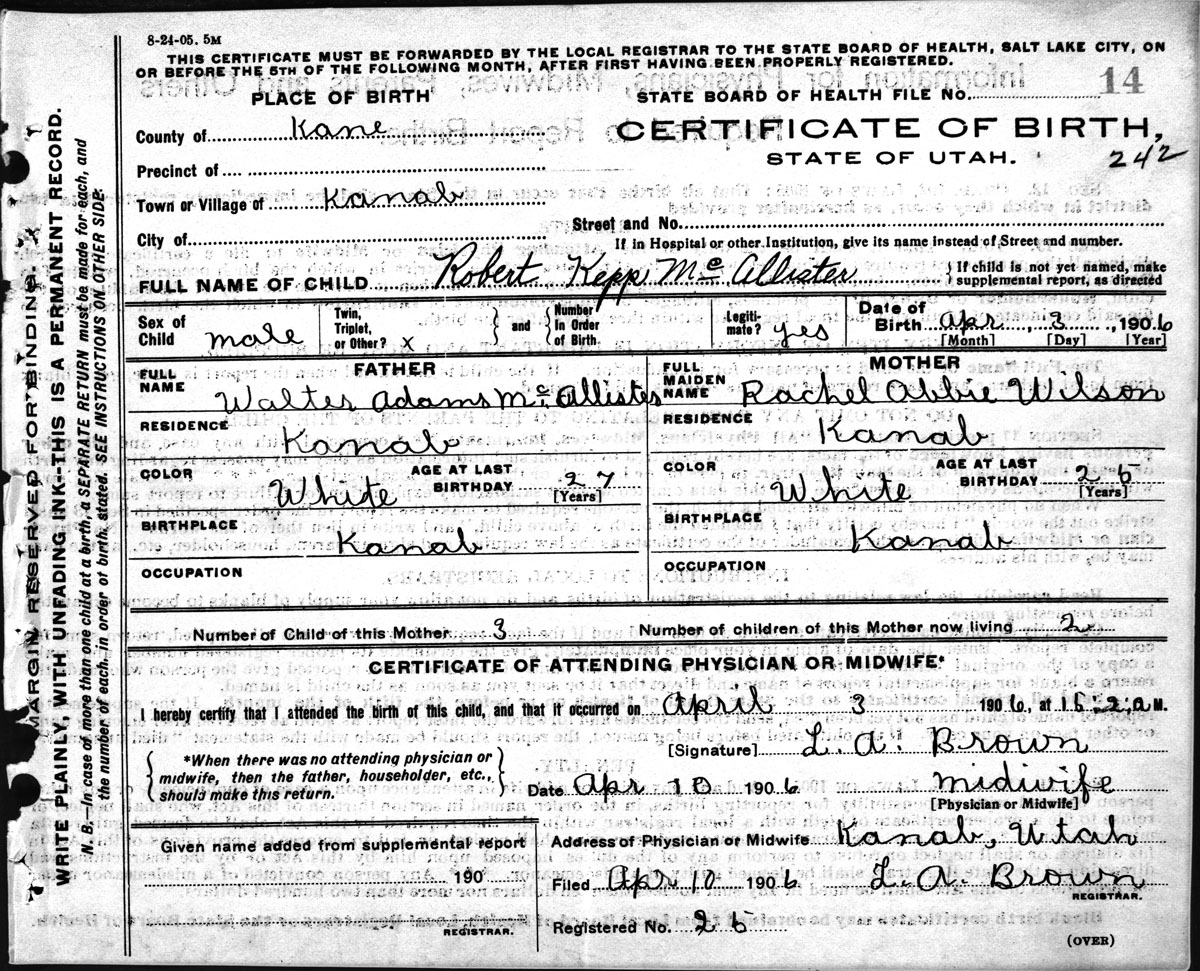 8-24-05. 5M
THIS CERTIFICATE MUST BE FORWARDED BY THE LOCAL REGISTRAR TO THE STATE BOARD OF HEALTH, SALT LAKE CITY, ON
OR BEFORE THE 5TH OF THE FOLLOWING MONTH, AFTER FIRST HAVING BEEN PROPERLY REGISTERED.
PLACE OF BIRTH
STATE BOARD OF HEALTH FILE NO. 14
County of Kane
CERTIFICATE OF BIRTH,
STATE OF UTAH. 242
Precinct of
Town or Village of Kanab
Street and No.
City of
If in Hospital or other Institution, give its name instead of Street and number.
FULL NAME OF CHILD Robert Kepp McAllister
} If child is not yet named, make
supplemental report, as directed
Sex of Child male
Twin, Triplet, or Other? x } and { Number in Order of Birth.
Legitimate? yes
Date of Birth Apr 3, 1906
[Month] [Day] [Year]
FATHER
FULL NAME Walter Adams McAllister
RESIDENCE Kanab
COLOR White
AGE AT LAST BIRTHDAY 27
[Years]
BIRTHPLACE Kanab
OCCUPATION
MOTHER
FULL MAIDEN NAME Rachel Abbie Wilson
RESIDENCE Kanab
COLOR White
AGE AT LAST BIRTHDAY 25
[Years]
BIRTHPLACE Kanab
OCCUPATION
Number of Child of this Mother 3 Number of children of this Mother now living 2
CERTIFICATE OF ATTENDING PHYSICIAN OR MIDWIFE*
I hereby certify that I attended the birth of this child, and that it occurred on April 3 1906, at a M.
[Signature] L. A. Brown
*When there was no attending physician or
midwife, then the father, householder, etc.,
should make this return.
Date Apr 10 1906 midwife
[Physician or Midwife]
Given name added from supplemental report
190
REGISTRAR.
Address of Physician or Midwife Kanab, Utah
Filed Apr 10 1906 L. A. Brown
REGISTRAR.
Registered No. 25
(OVER)
MARGIN RESERVED FOR BINDING.
WRITE PLAINLY, WITH UNFADING INK—THIS IS A PERMANENT RECORD.
N. B.—In case of more than one child at a birth, a SEPARATE RETURN must be made for each, and
the number of each, in order of birth, stated. SEE INSTRUCTIONS ON OTHER SIDE.